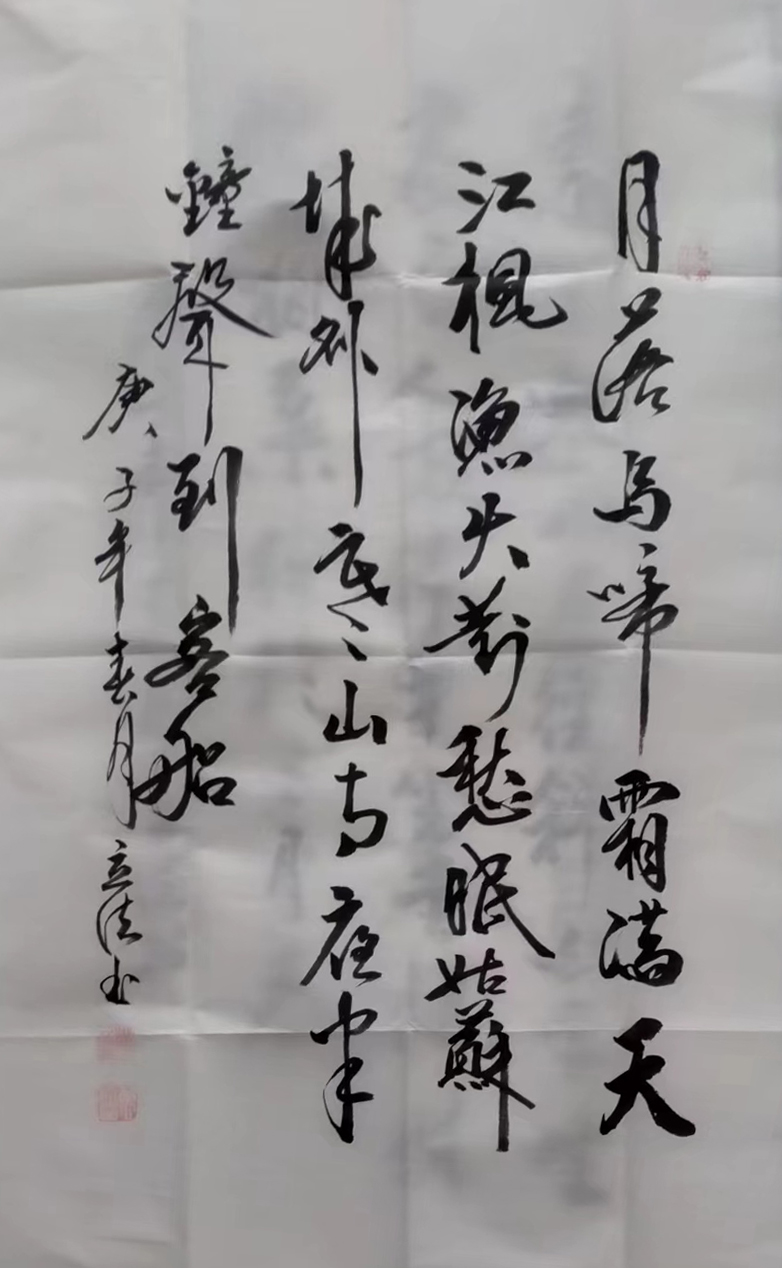 月落烏啼霜滿天
江楓漁火對愁眠姑蘇
城外寒山寺夜半
鐘聲到客船
庚子年春月立法书